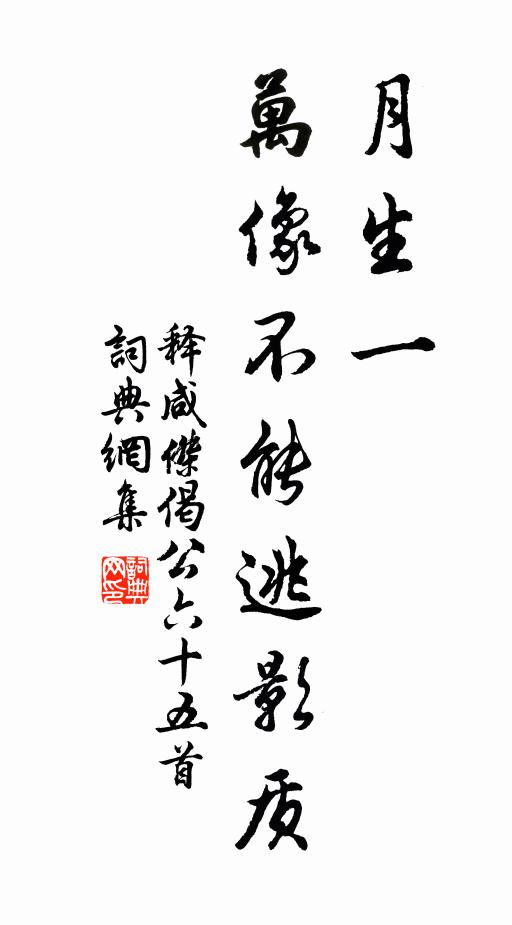 月生一
萬像不能逃影质
释咸傑偈公六十五首
詞典網集
詞典网印